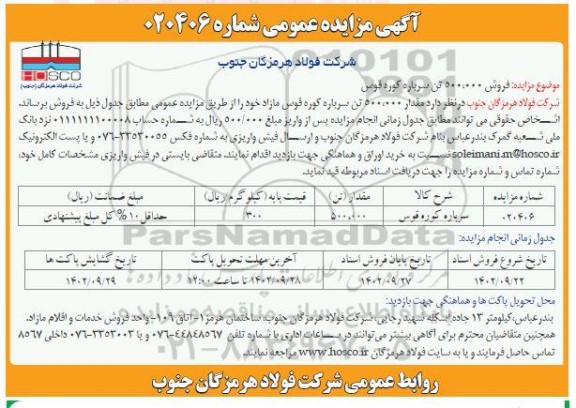 آگهی مزایده عمومی شماره ۰۲۰۴۰۶
شرکت فولاد هرمزگان جنوب
HOSCO
شرکت فولاد هرمزگان (جنوب)
موضوع مزایده: فروش ۵۰۰.۰۰۰ تن سرباره کوره قوس
شرکت فولاد هرمزگان جنوب در نظر دارد مقدار ۵۰۰.۰۰۰ تن سرباره کوره قوس مازاد خود را از طریق مزایده عمومی مطابق جدول ذیل به فروش برساند.
اشخاص حقوقی می توانند مطابق جدول زمانی انجام مزایده پس از واریز مبلغ ۵۰۰/۰۰۰ ریال به شماره حساب نزد بانک
ملی شعبه گمرک بندرعباس بنام شرکت فولاد هرمزگان جنوب و ارسال فیش واریزی به شماره فکس ۳۳۵۳۰۰۵۵-۰۷۶ و یا پست الکترونیک
soleimani.m@hosco.ir نسبت به خرید اوراق و هماهنگی جهت بازدید اقدام نمایند. متقاضی بایستی در فیش واریزی مشخصات کامل خود،
شماره تماس و شماره مزایده را جهت دریافت اسناد مربوطه قید نماید.
شماره مزایده شرح کالا مقدار (تن) قیمت پایه (کیلوگرم/ریال) مبلغ ضمانت (ریال)
۰۲۰۴۰۶ سرباره کوره قوس ۵۰۰.۰۰۰ ۳۰۰ حداقل ۱۰% کل مبلغ پیشنهادی
جدول زمانی انجام مزایده:
تاریخ شروع فروش اسناد تاریخ پایان فروش اسناد آخرین مهلت تحویل پاکت تاریخ گشایش پاکت ها
۱۴۰۲/۰۹/۲۲ ۱۴۰۲/۰۹/۲۷ ۱۴۰۲/۰۹/۲۸ تا ساعت ۱۲:۰۰ ۱۴۰۲/۰۹/۲۹
محل تحویل پاکت ها و هماهنگی جهت بازدید:
بندرعباس،کیلومتر ۱۳ جاده اسکله شهید رجایی، شرکت فولاد هرمزگان جنوب، ساختمان هرمز۱-اتاق ۱۰۹-واحد فروش خدمات و اقلام مازاد.
همچنین متقاضیان محترم برای آگاهی بیشتر می‌توانند در ساعات اداری با شماره تلفن ۴۴۸۴۸۵۶۷-۰۷۶ و یا ۳۳۵۳۰۰۳-۰۷۶ داخلی ۸۵۶۷
تماس حاصل فرمایند و یا به سایت فولاد هرمزگان www.hosco.ir مراجعه نمایند.
روابط عمومی شرکت فولاد هرمزگان جنوب
ParsNamadData